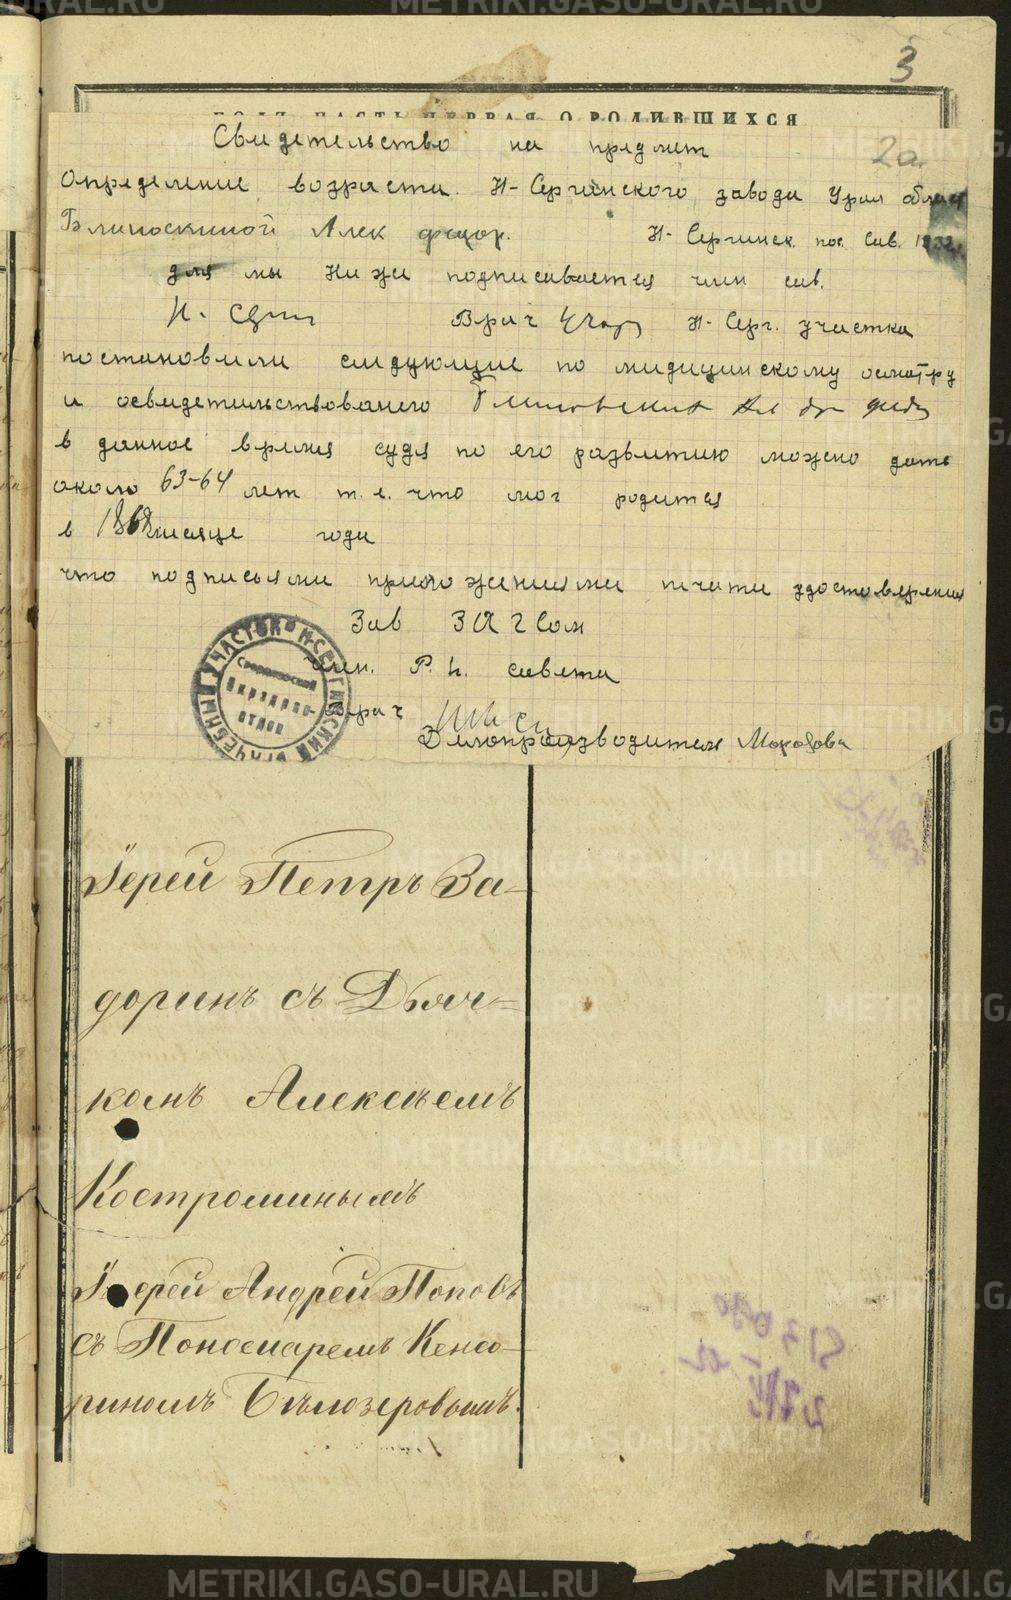 3
ЧАСТЬ ПЕРВАЯ О РОДИВШИХСЯ
Свидетельство на предмет
2а.
определение возраста Н-Сергинского завода Урал области
Н-Сергинск. пос. Сов. 1932
для мы ниже подписавшиеся член сов.
Н. Серги Врач Н-Серг. участка
постановили следующие по медицинскому осмотру
и освидетельствованего
в данное время судя по его развитию можно дать
около 63-64 лет т.е. что мог родится
в 1868 месяце годи
что подписьями приложениями печати удостоверения
Зав ЗАГСом
член. Р. совета
Врач
Делопроизводитель Морозова
ВРАЧЕБНЫЙ УЧАСТОК Н-СЕРГИНСКИЙ
Іерей Петръ За-
доринъ съ Дьяч-
комъ Алексѣемъ
Костроминымъ
Іерей Андрей Поповъ
съ Пономаремъ Кенсо-
риномъ Бѣлозеровымъ.
METRIKI.GASO-URAL.RU